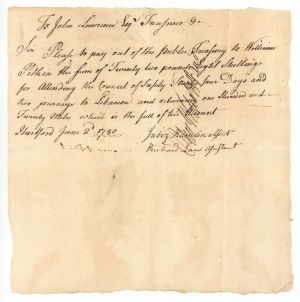 To John Lawrence Esqr Treasurer &c
Sir Please to pay out of the Public Treasury to William
Pitkin the sum of Twenty two pounds Eight Shillings
for Attending the Council of Safety Twenty four Days and
two journeys to Lebanon and returning one Hundred and
Twenty Miles which is the full of his Account
Hartford June 2d 1780
Jabez Hamlin Assistt
Richard Law Assistant